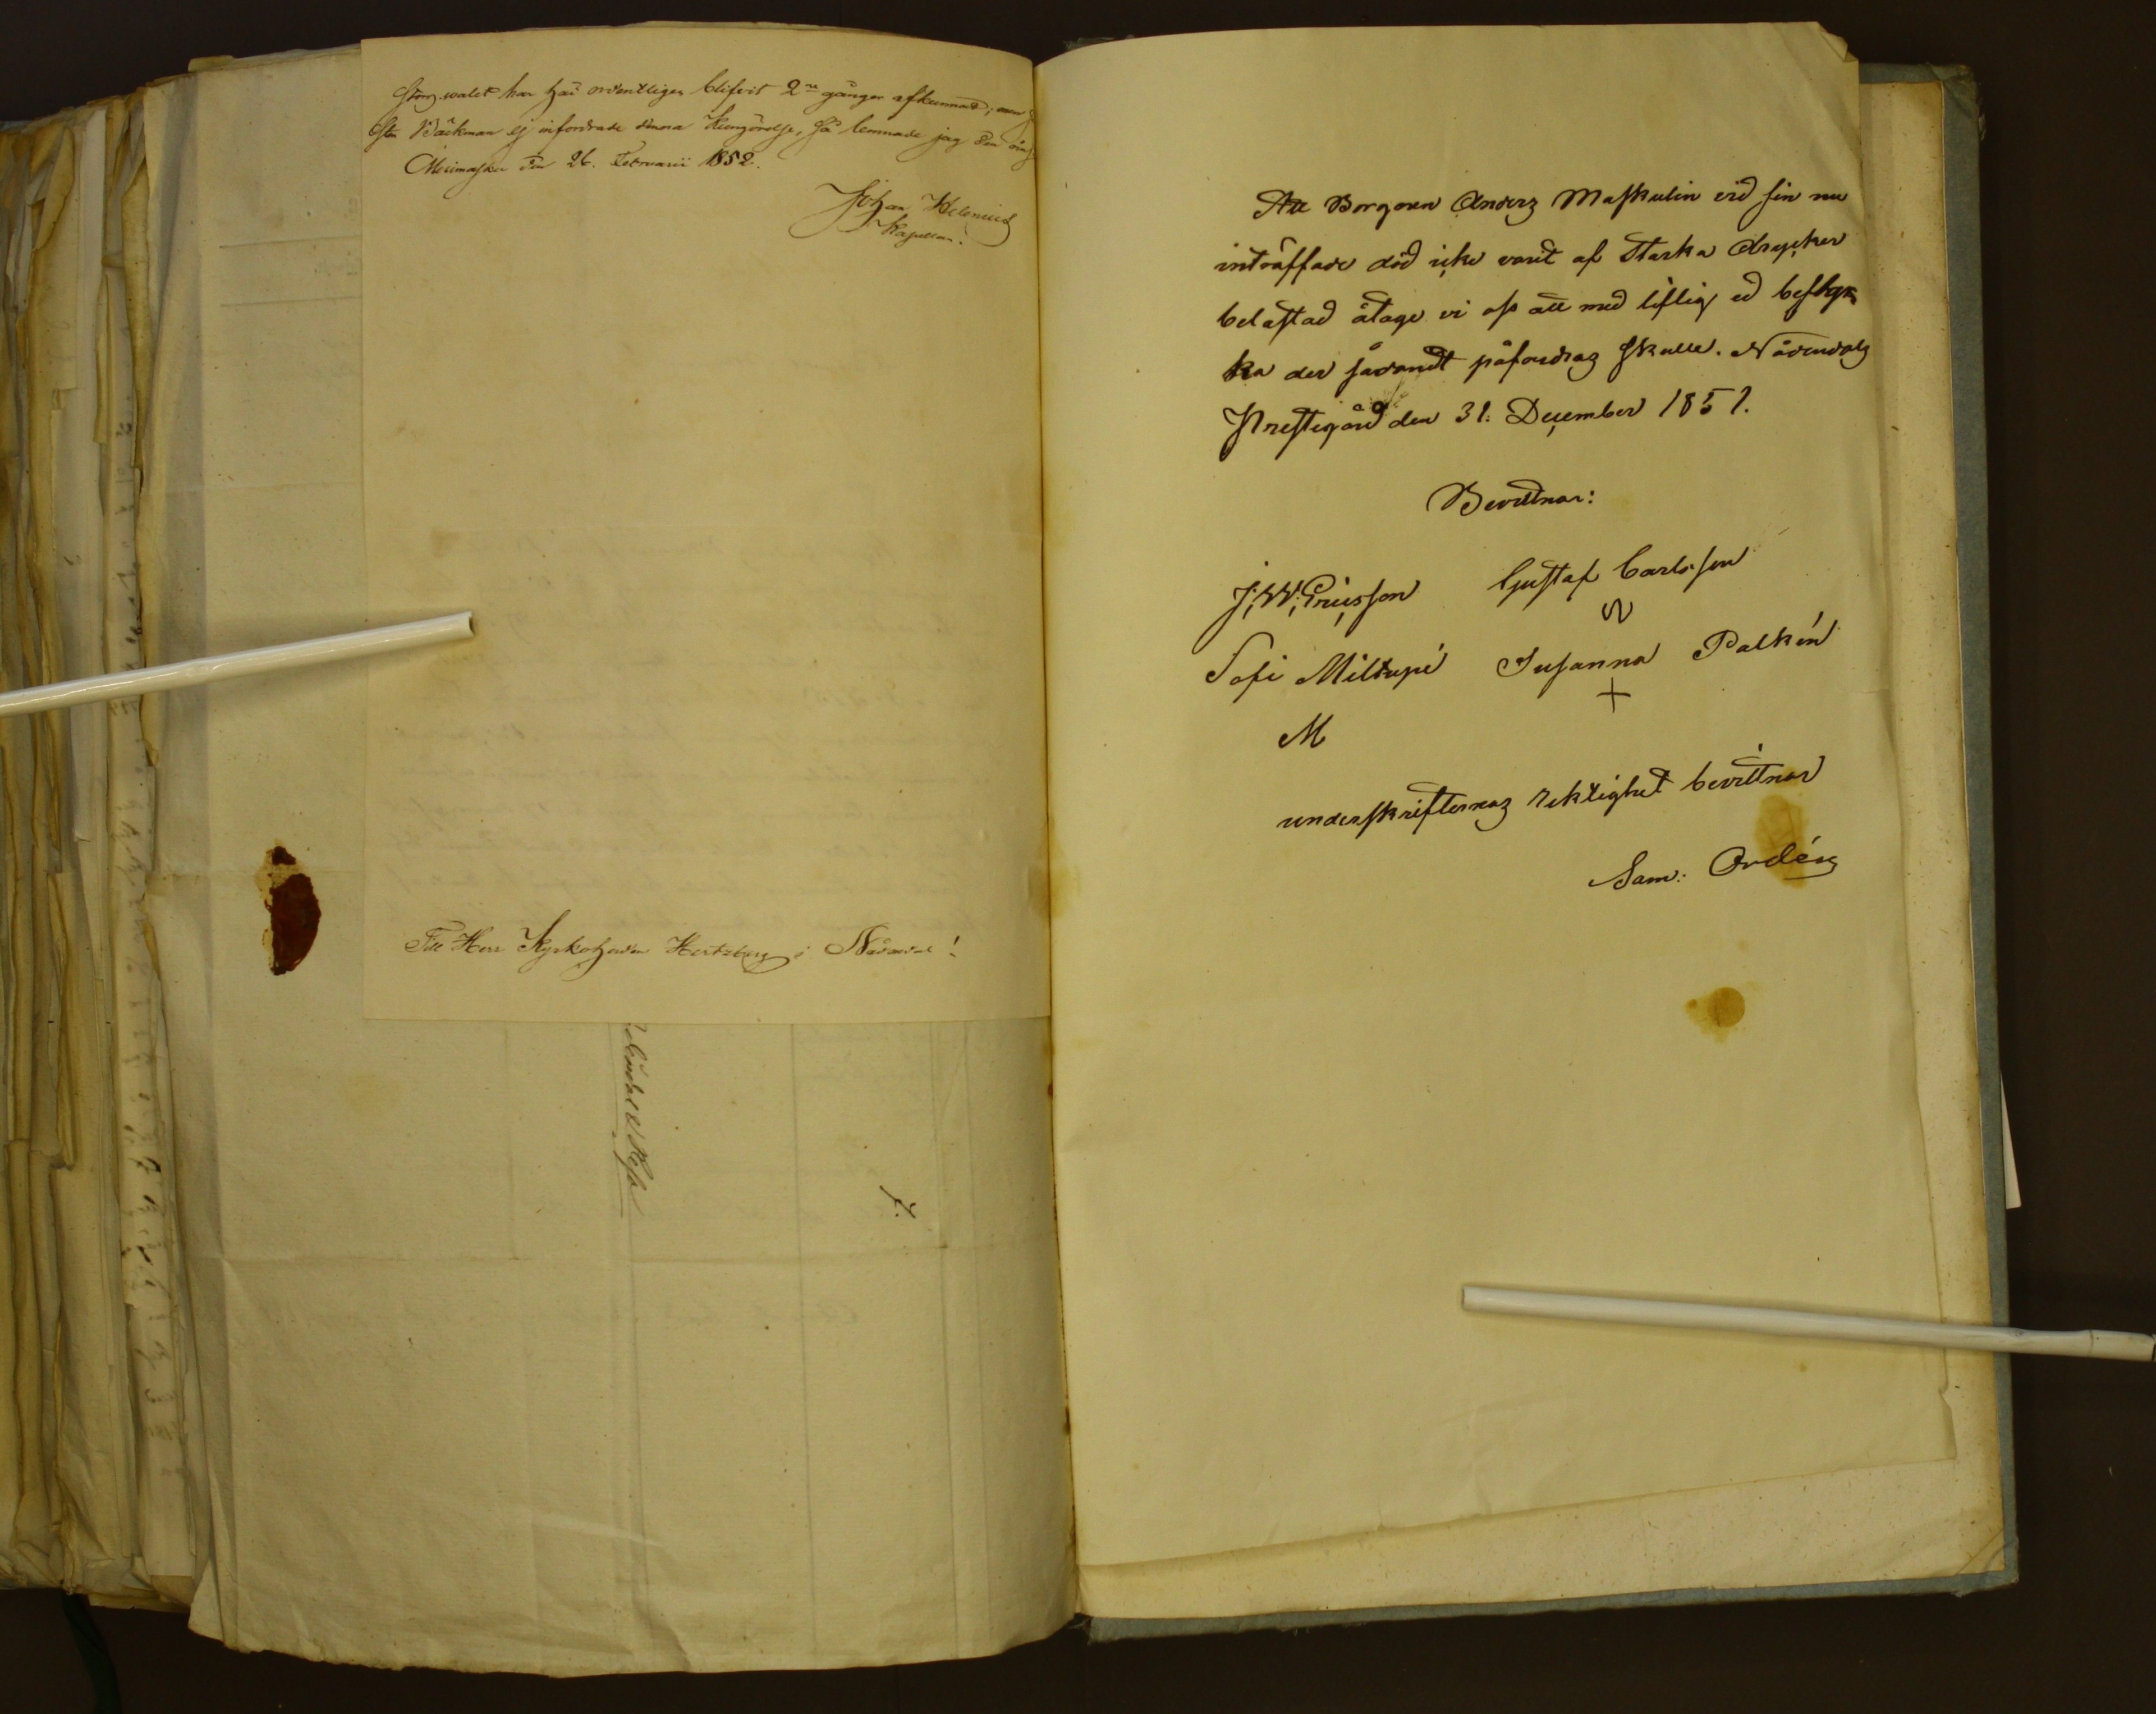 har här ordentligen blifvit 2ne gånger afkunnad; men
Bäckman ej infordrade denna Kungörelse, så lemnade jag den
Merimasku den 26. Februarii 1852.
Johan Helenius
Kapellan.
Till Herr Kyrkoherden Hertzberg i Nådendal!
7.
Att Borgaren Anders Maskulin vid sin nu
inträffade död icke varit af starka drycker
belastad åtage vi oss att med liflig ed bestyr
ka der sådandt påfordras skulle. Nådendals
Prestegård den 31. December 1851.
Bevittnar:
J. W. Ericsson Gustaf Carlsson
Sofi Susanna Palkén
M +
underskrifternas riktighet bevittnar
Sam: Ordén